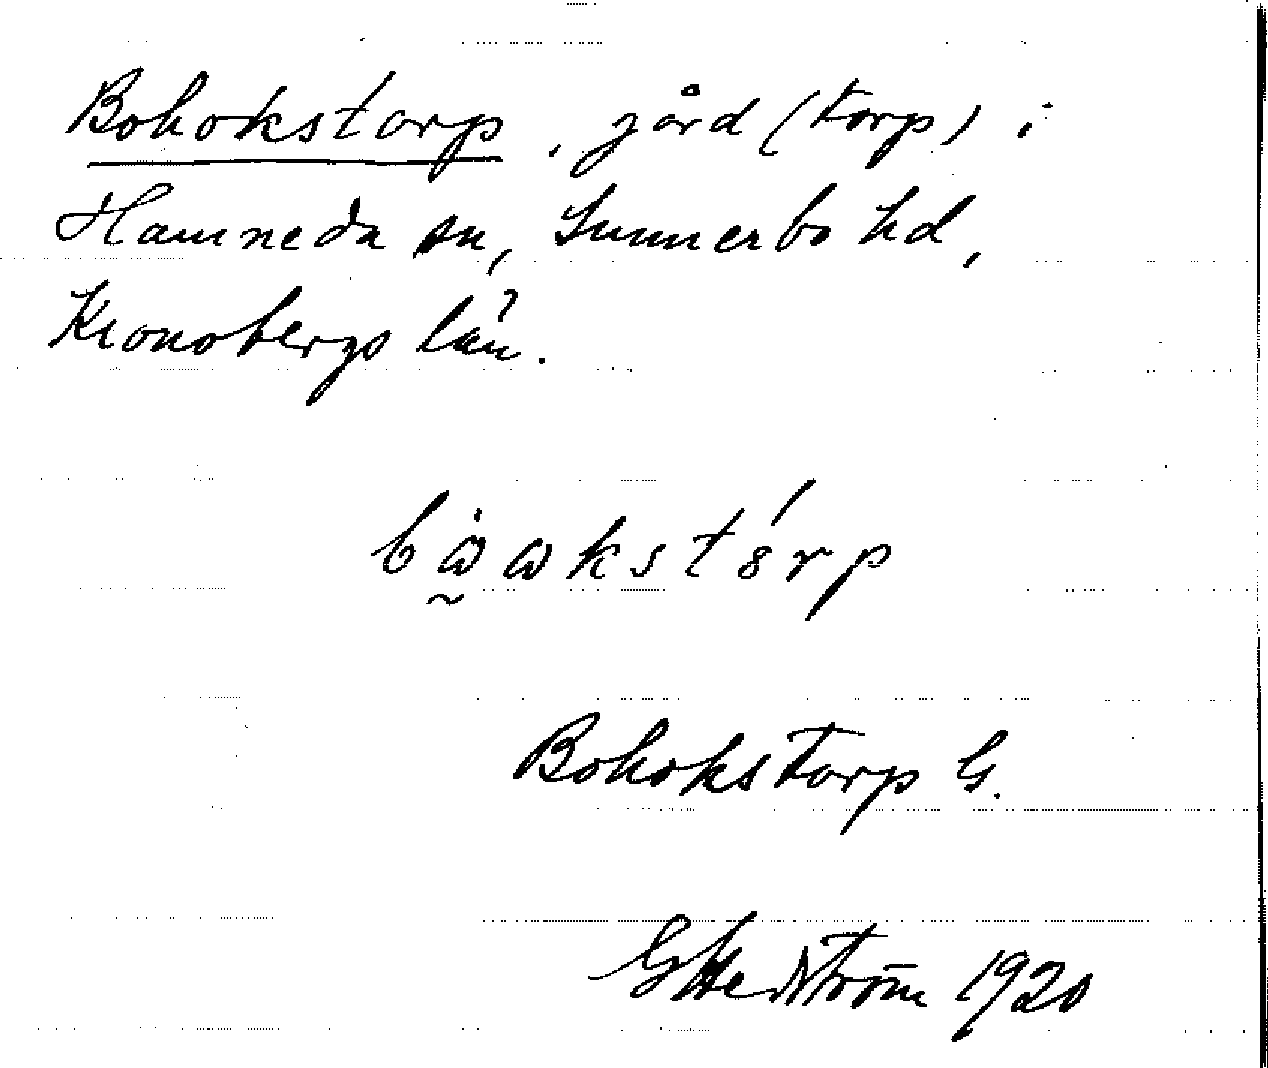 Bohokstorp, gård (torp) i
Hamneda sn, Sunnerbo hd,
Kronobergs län.
Bohokstorp G.
G Hedström 1920